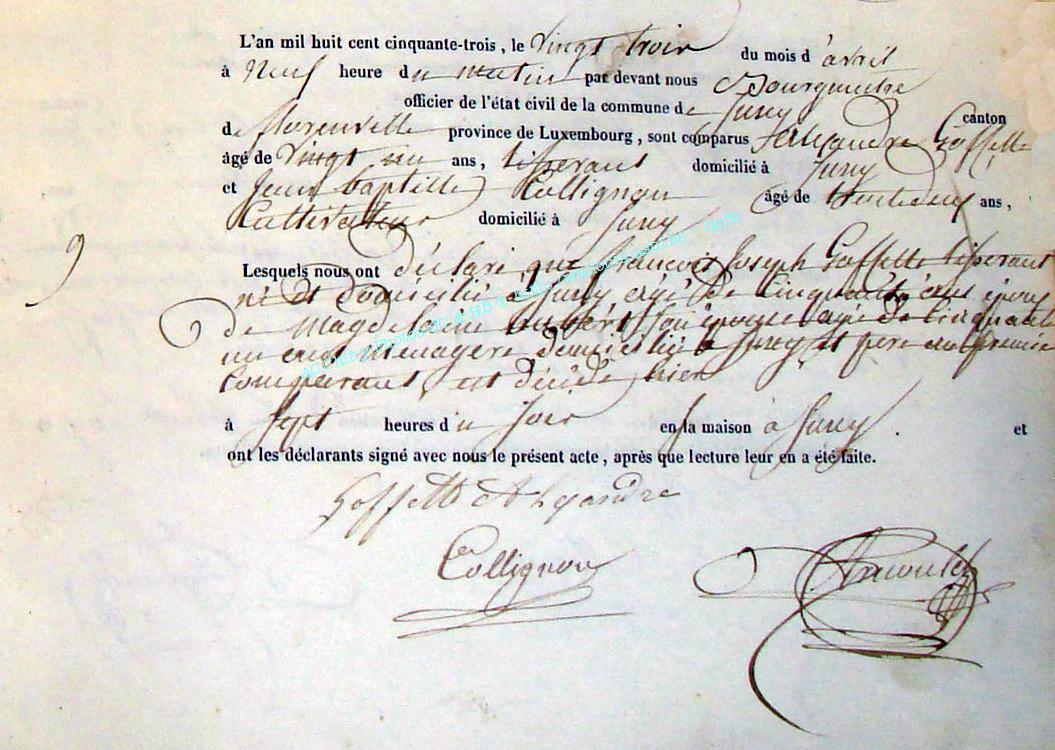 L'an mil huit cent cinquante-trois, le vingt trois du mois d'avril
à neuf heure du matin par devant nous Bourgmestre
officier de l'état civil de la commune de Suxy canton
de florenville province de Luxembourg, sont comparus Alexandre Goffette
âgé de vingt un ans, tisserant domicilié à Suxy
et Jean baptiste Collignon âgé de trentedeux ans,
Cultivateur domicilié à Suxy
9
Lesquels nous ont déclaré que françois Joseph Goffette tisserant
né et domicilié à Suxy, agé de cinquante ans époux
de Magdelaine aubert, son épouse agé de cinquante
un ans Menagere domiciliée à Suxy et père au premier
Comparant, est décédé, hier
à Sept heures du soir en sa maison à Suxy. et
ont les déclarants signé avec nous le présent acte, après que lecture leur en a été faite.
Goffette Alexandre
Collignon